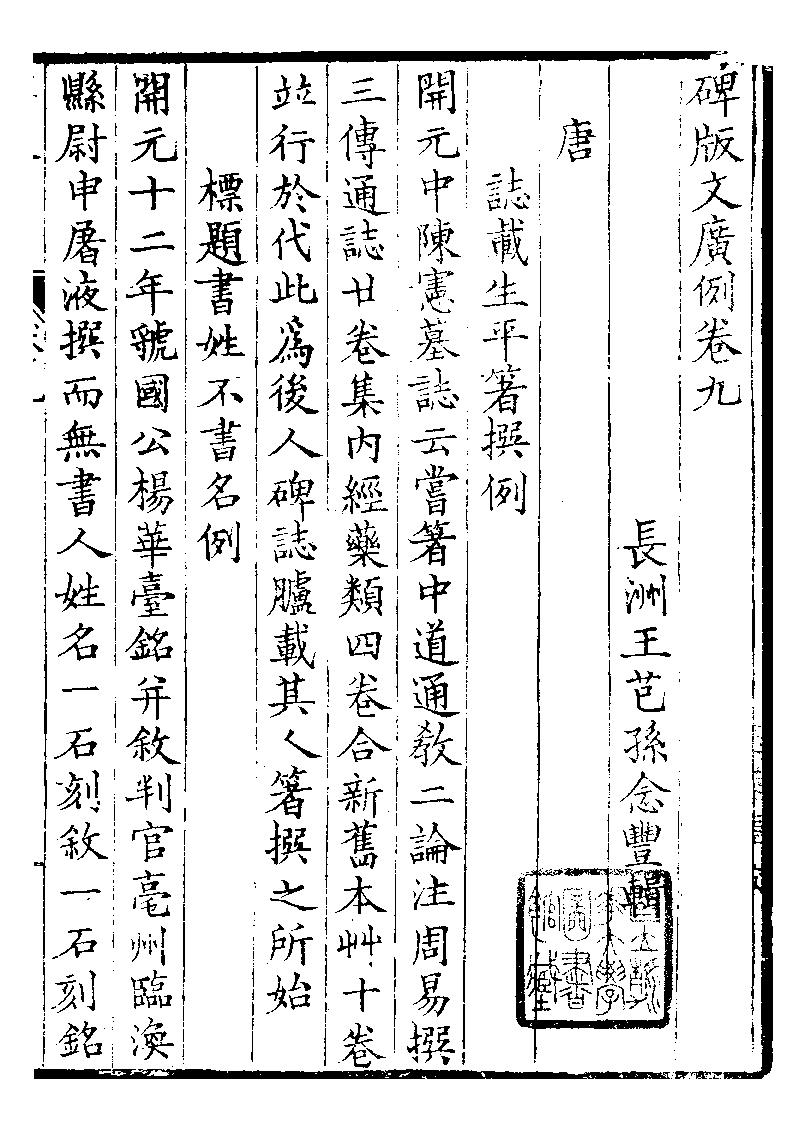 碑版文廣例卷九
長洲王芑孫念豐輯
唐
誌載生平箸撰例
開元中陳憲墓誌云嘗箸中道通教二論注周易撰
三傳通誌廿卷集內經藥類四卷合新舊本艸十卷
竝行於代此爲後人碑誌臚載其人箸撰之所始
標題書姓不書名例
開元十二年虢國公楊華臺銘并敘判官亳州臨渙
縣尉申屠液撰而無書人姓名一石刻敘一石刻銘